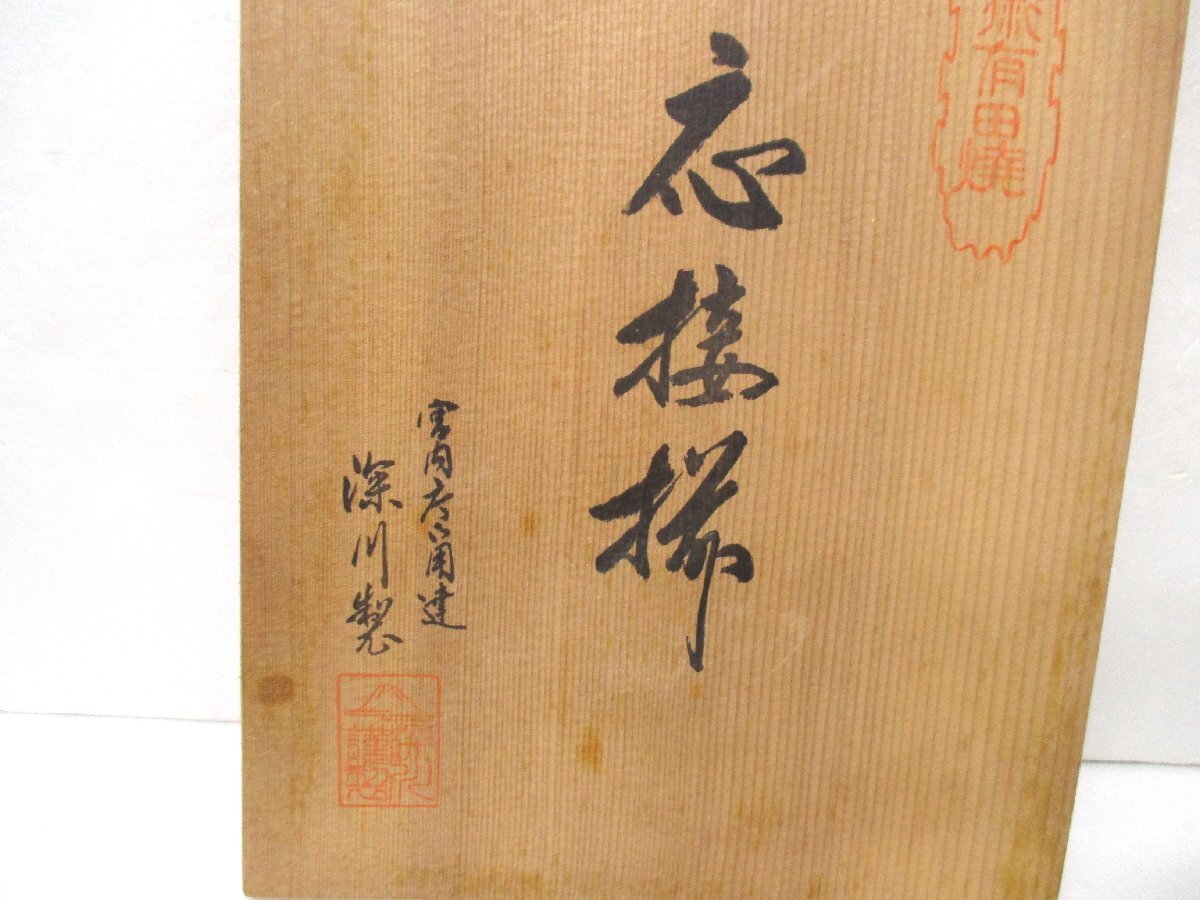 術有田焼
応接揃
宮内庁御用達
深川製